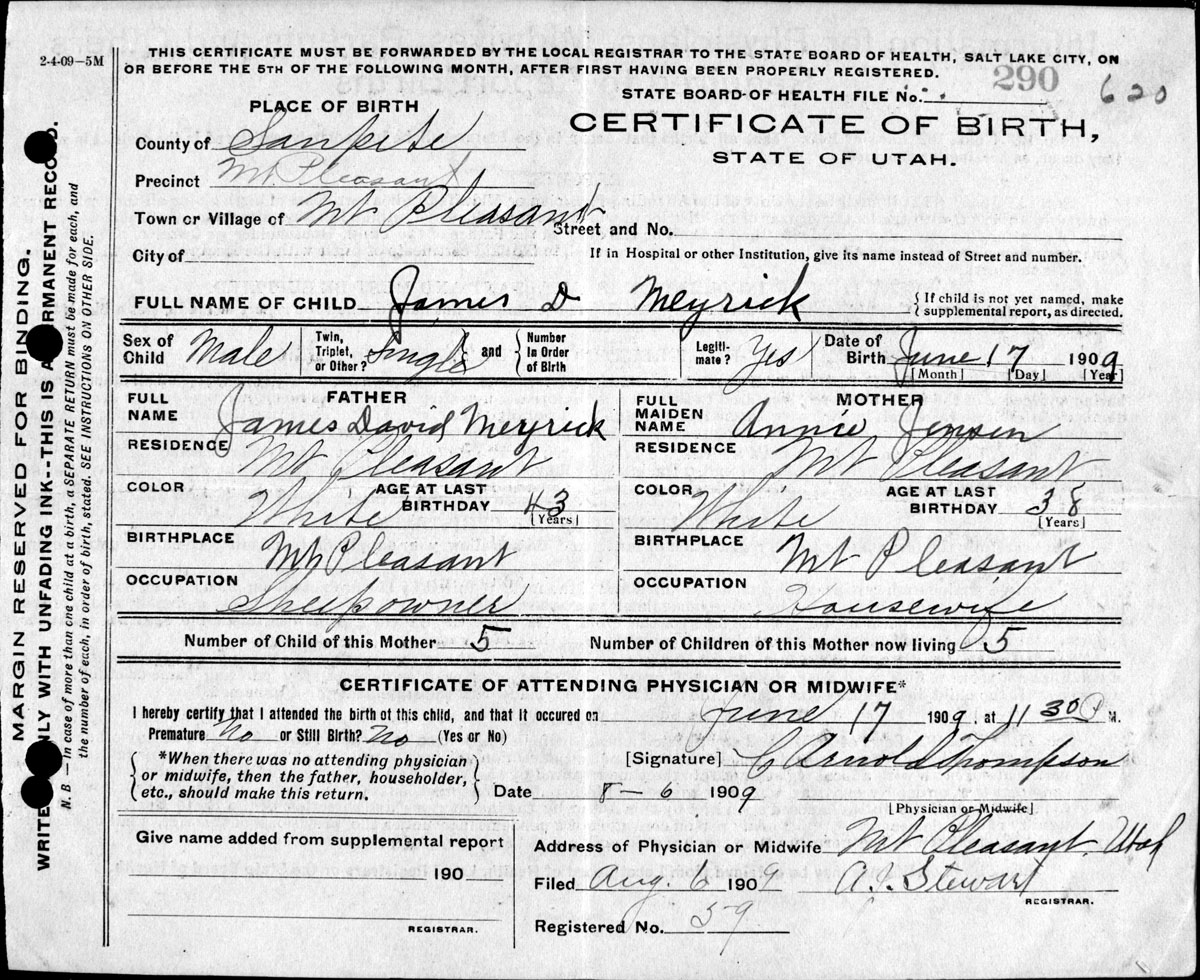 2-4-09-5M
THIS CERTIFICATE MUST BE FORWARDED BY THE LOCAL REGISTRAR TO THE STATE BOARD OF HEALTH, SALT LAKE CITY, ON
OR BEFORE THE 5TH OF THE FOLLOWING MONTH, AFTER FIRST HAVING BEEN PROPERLY REGISTERED.
STATE BOARD OF HEALTH FILE No. 290 620
PLACE OF BIRTH
CERTIFICATE OF BIRTH,
STATE OF UTAH.
County of Sanpete
Precinct Mt. Pleasant
Town or Village of Mt Pleasant Street and No.
City of If in Hospital or other Institution, give its name instead of Street and number.
FULL NAME OF CHILD James D Meyrick { If child is not yet named, make supplemental report, as directed.
Sex of Child Male Twin, Triplet, or Other? Single and Number in Order of Birth Legiti-mate? Yes Date of Birth June 17 1909
[Month] [Day] [Year]
FATHER MOTHER
FULL NAME James David Meyrick FULL MAIDEN NAME Annie Jensen
RESIDENCE Mt Pleasant RESIDENCE Mt Pleasant
COLOR White AGE AT LAST BIRTHDAY 43 [Years] COLOR White AGE AT LAST BIRTHDAY 38 [Years]
BIRTHPLACE Mt Pleasant BIRTHPLACE Mt Pleasant
OCCUPATION Sheepowner OCCUPATION Housewife
Number of Child of this Mother 5 Number of Children of this Mother now living 5
CERTIFICATE OF ATTENDING PHYSICIAN OR MIDWIFE*
I hereby certify that I attended the birth of this child, and that it occured on June 17 1909, at 11 30 P M.
Premature No or Still Birth? No (Yes or No)
*When there was no attending physician or midwife, then the father, householder, etc., should make this return.
[Signature] C Arnold Thompson
Date 8-6 1909
[Physician or Midwife]
Give name added from supplemental report
190
REGISTRAR.
Address of Physician or Midwife Mt Pleasant, Utah
Filed Aug. 6 1909 A.J. Stewart
REGISTRAR.
Registered No. 59
MARGIN RESERVED FOR BINDING.
WRITE ONLY WITH UNFADING INK--THIS IS A PERMANENT RECORD.
N. B.—In case of more than one child at a birth, a SEPARATE RETURN must be made for each, and
the number of each, in order of birth, stated. SEE INSTRUCTIONS ON OTHER SIDE.